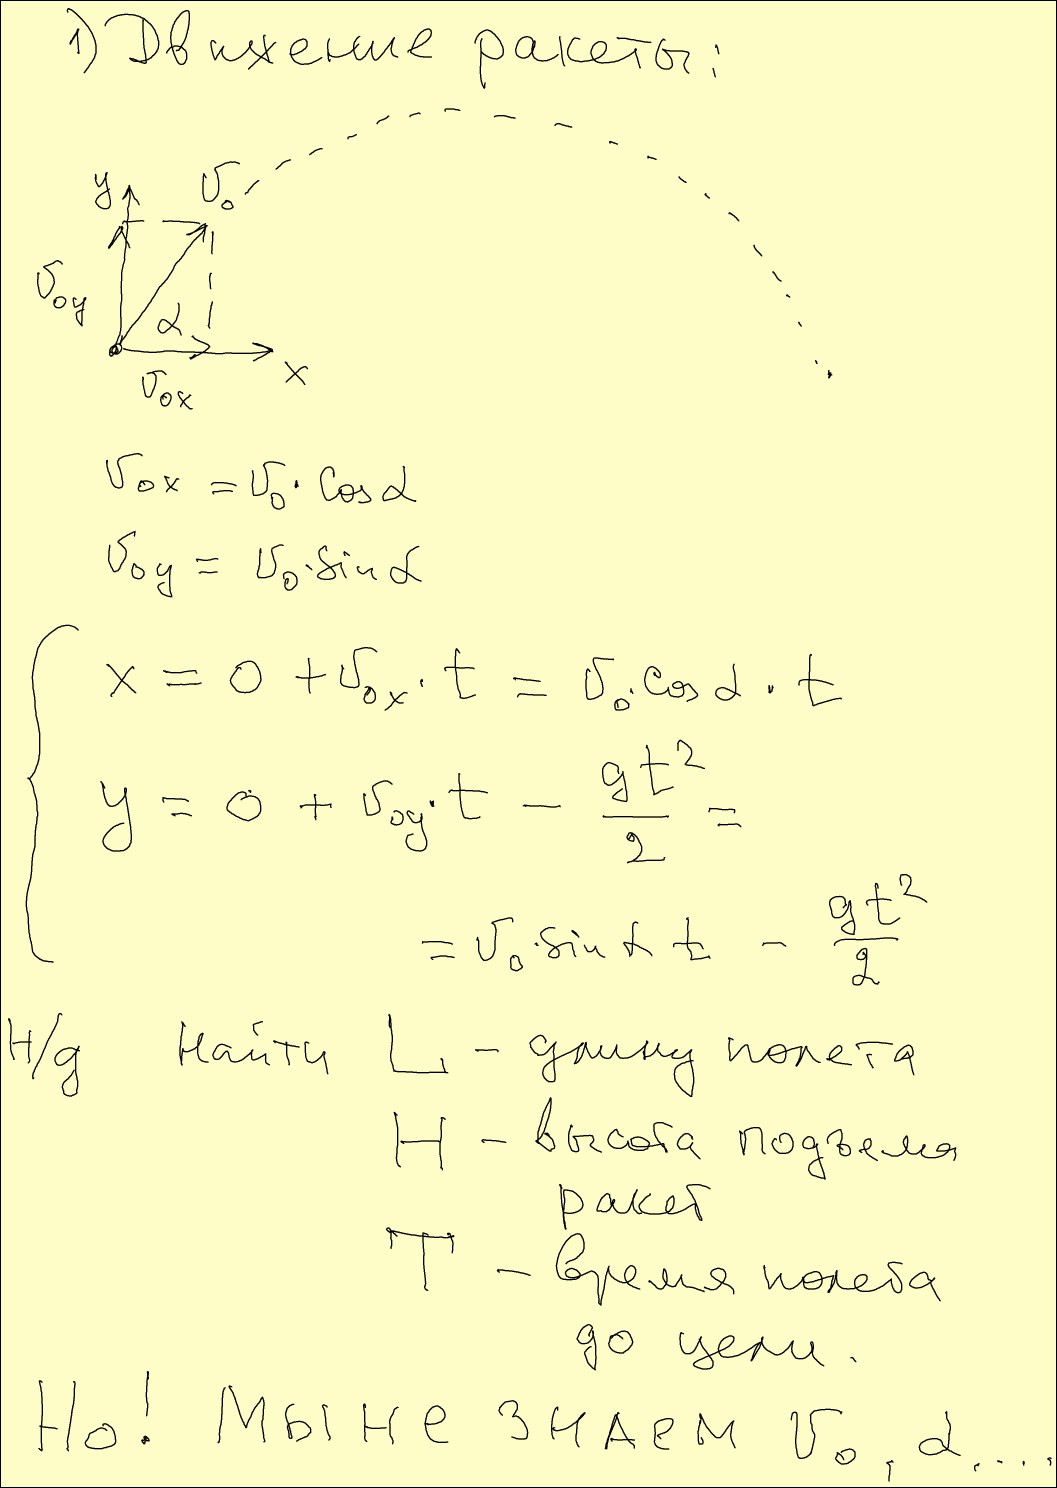 1) Движение ракеты:
y
v₀
v₀y
α
x
v₀x
v₀x = v₀ · cos α
v₀y = v₀ · sin α
x = 0 + v₀x · t = v₀ · cos α · t
y = 0 + v₀y · t - gt²/2 =
= v₀ · sin α t - gt²/2
Н/д найти L - длину полета
H - высота подъема
ракет
T - время полета
до цели.
Но! Мы не знаем v₀, α, ....